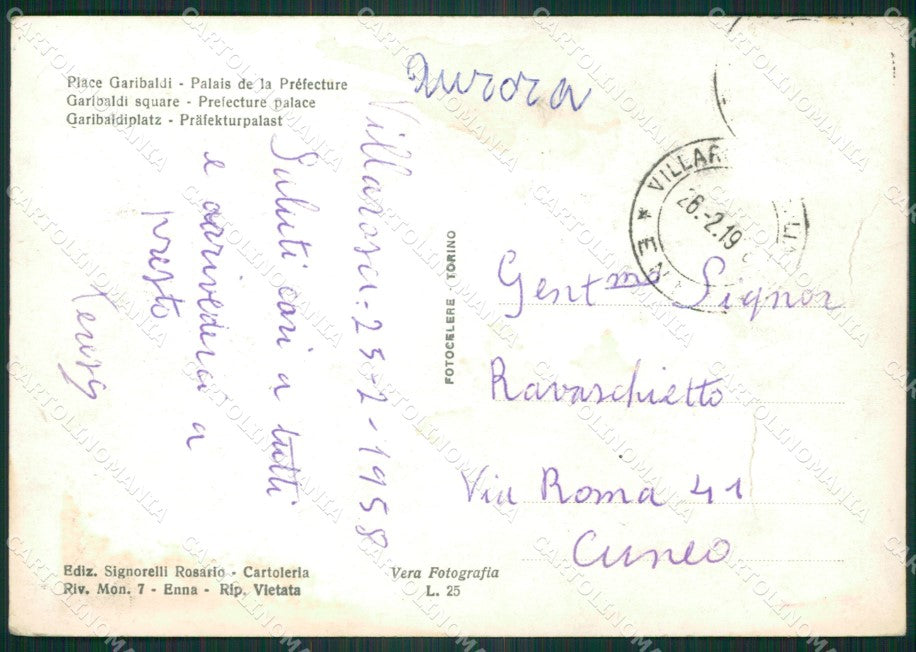 Place Garibaldi - Palais de la Préfecture
Garibaldi square - Prefecture palace
Garibaldiplatz - Präfekturpalast
Aurora
Villarosa - 25-2-1958
Saluti cari a tutti
e arrivederci a
presto
VILLAR
26.-2.19
* EN
FOTOCELERE - TORINO
Gent.mo Signor
Ravaschietto
Via Roma 41
Cuneo
Ediz. Signorelli Rosario - Cartoleria
Riv. Mon. 7 - Enna - Rip. Vietata
Vera Fotografia
L. 25
CARTOLINOMANIA